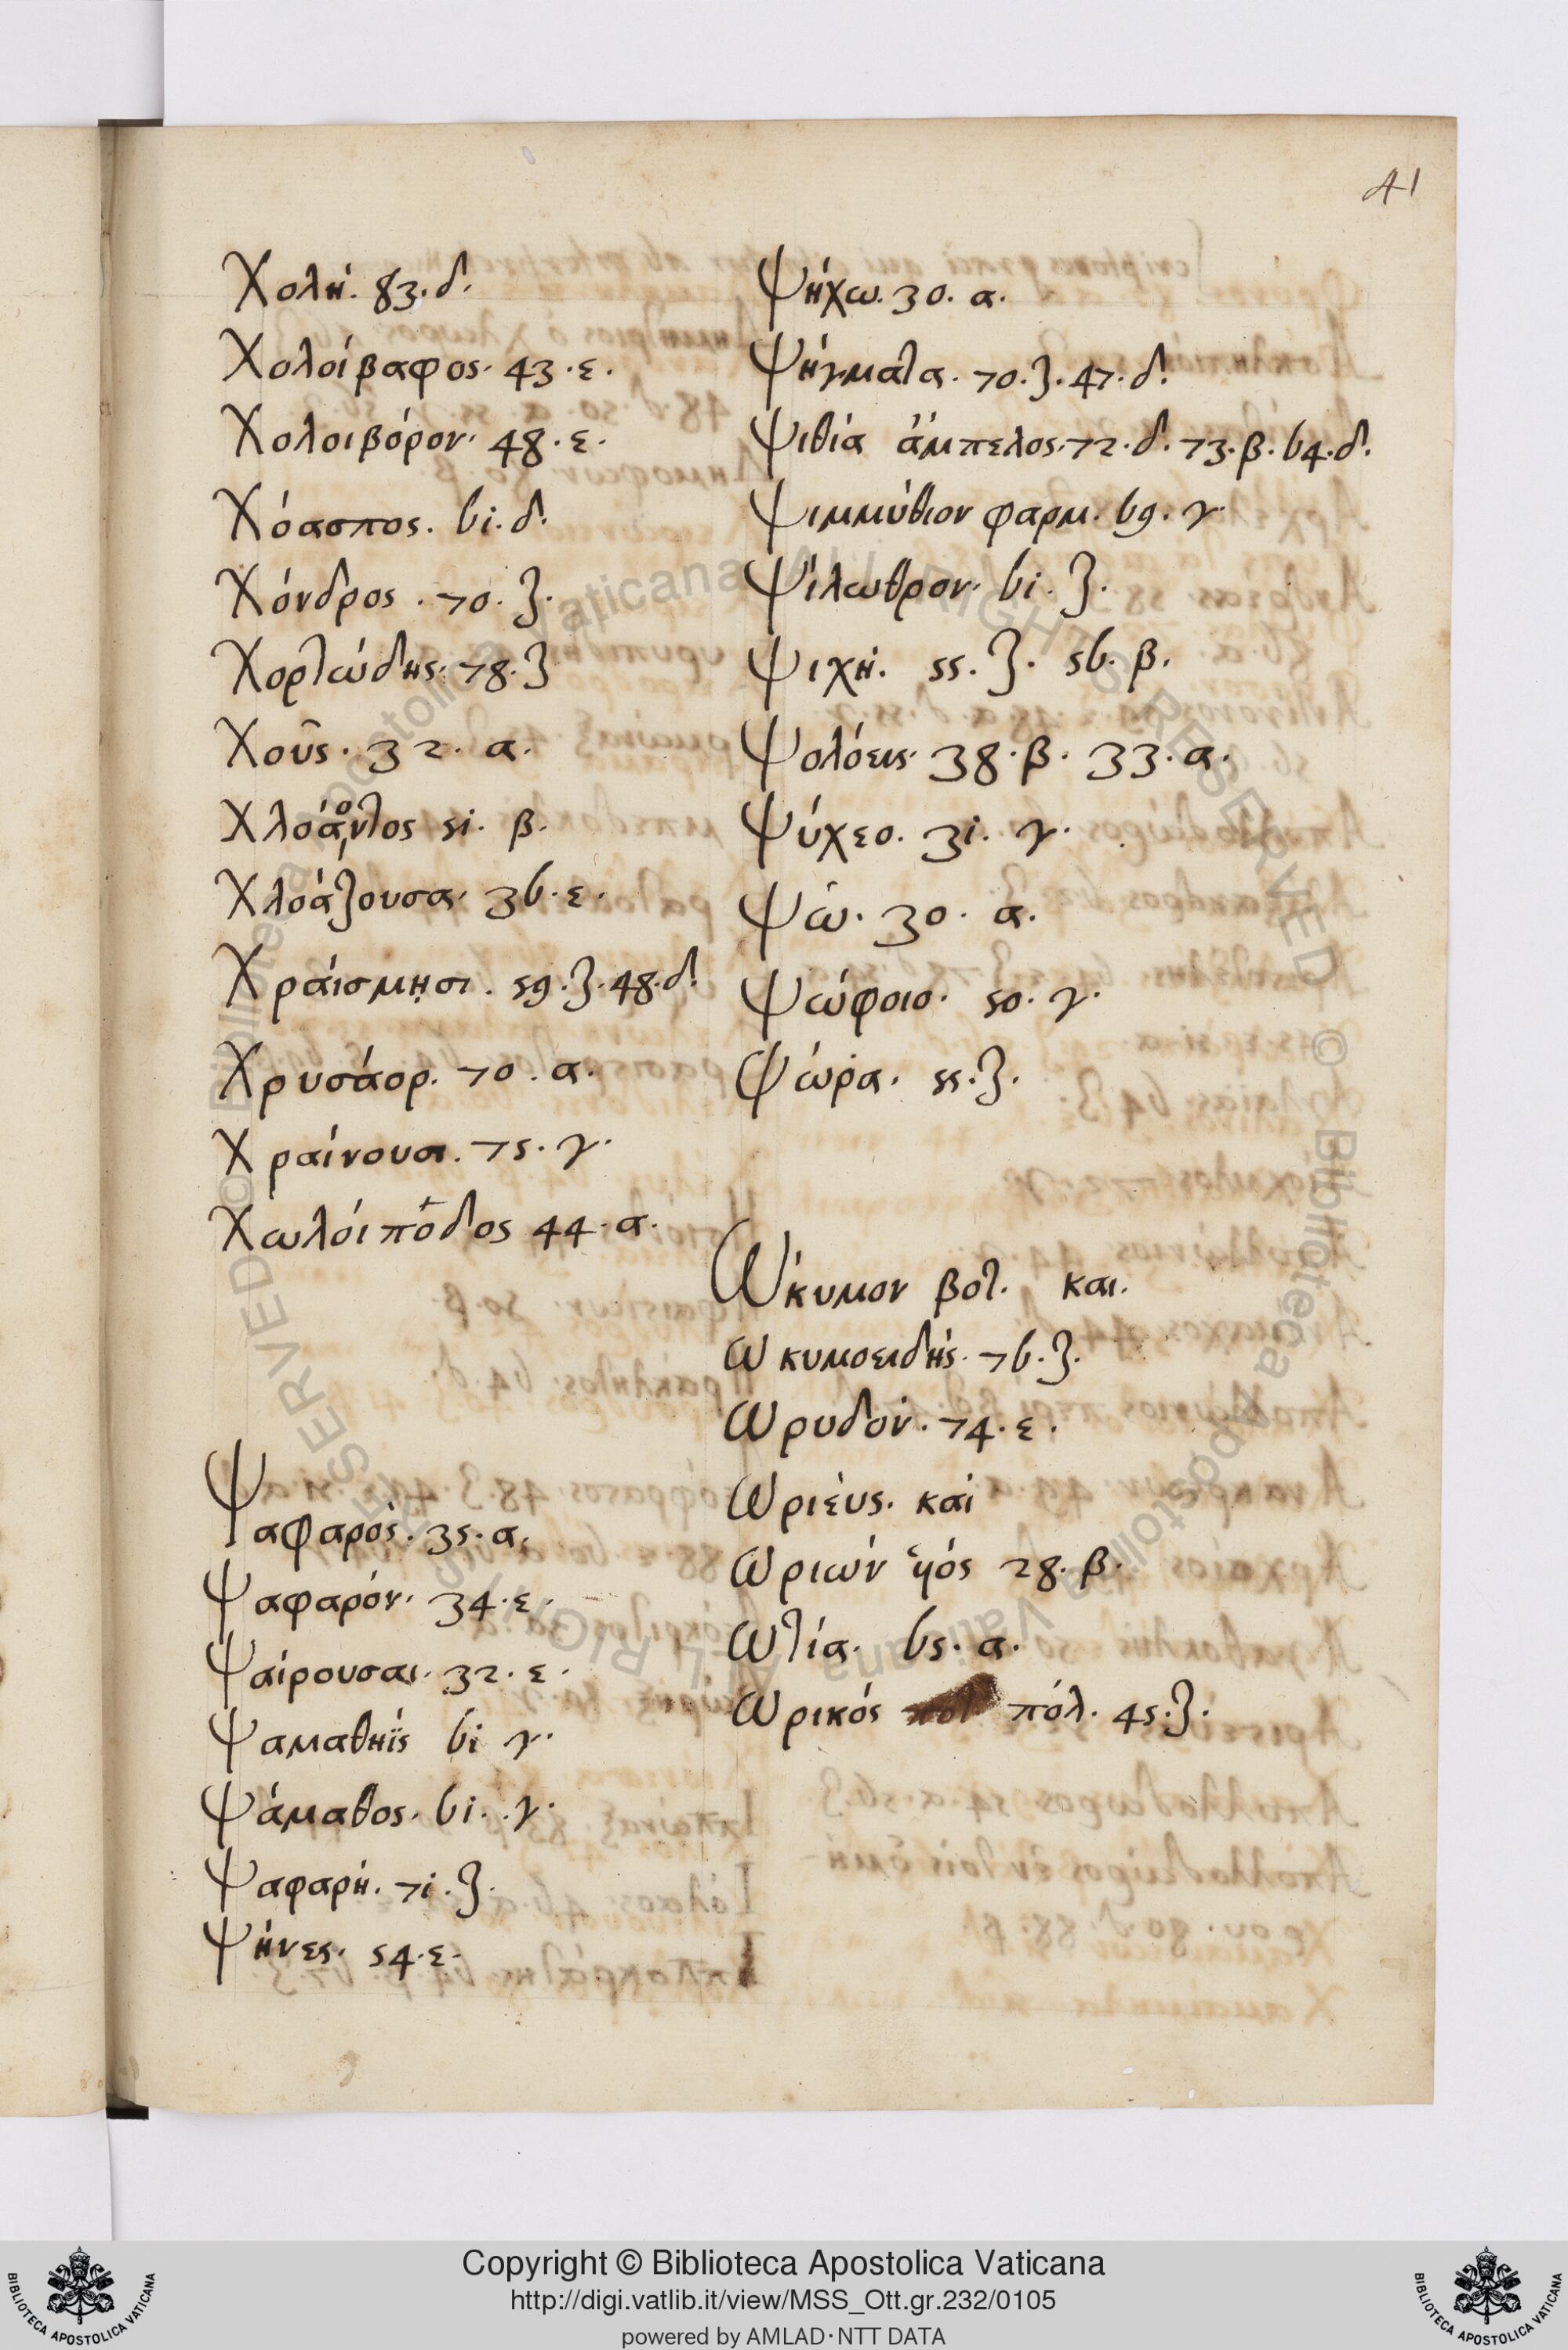 41
Χολή. 83. δ.
Χολοίβαφος. 43. ε.
Χολοιβόρον. 48. ε.
Χόασπος. 61. δ.
Χόνδρος. 70. ζ.
Χορτώδης. 78. ζ
Χοῦς. 32. α.
Χλοάοντος 51. β.
Χλοάζουσα. 36. ε.
Χράισμησι. 59. ζ. 48. δ.
Χρυσάορ. 70. α.
Χραίνουσι. 75. γ.
Χωλοίποδος 44. α.
Ψαφαρός. 35. α.
Ψαφαρόν. 34. ε.
Ψαίρουσαι. 32. ε.
Ψαμαθηΐς 61 γ.
Ψάμαθος. 61. γ.
Ψαφαρή. 71. ζ.
Ψήνες. 54. ε.
Ψήχω. 30. α.
Ψήγματα. 70. ζ. 47. δ.
Ψιθία ἄμπελος. 72. δ. 73. β. 64. δ.
Ψιμμύθιον φαρμ. 69. γ.
Ψίλωθρον. 61. ζ.
Ψιχή. 55. ζ. 56. β.
Ψολόεις. 38. β. 33. α.
Ψύχεο. 31. γ.
Ψώ. 30. α.
Ψώφοιο. 50. γ.
Ψώρα. 55. ζ.
Ὤκυμον βοτ. και.
Ωκυμοειδής. 76. ζ.
Ωρυδόν. 74. ε.
Ωριεύς. καί
Ωριών 28. β.
Ωτία. 65. α.
Ωρικός πόλ. 45. ζ.
Copyright © Biblioteca Apostolica Vaticana
http://digi.vatlib.it/view/MSS_Ott.gr.232/0105
powered by AMLAD·NTT DATA
BIBLIOTECA APOSTOLICA VATICANA
BIBLIOTECA APOSTOLICA VATICANA